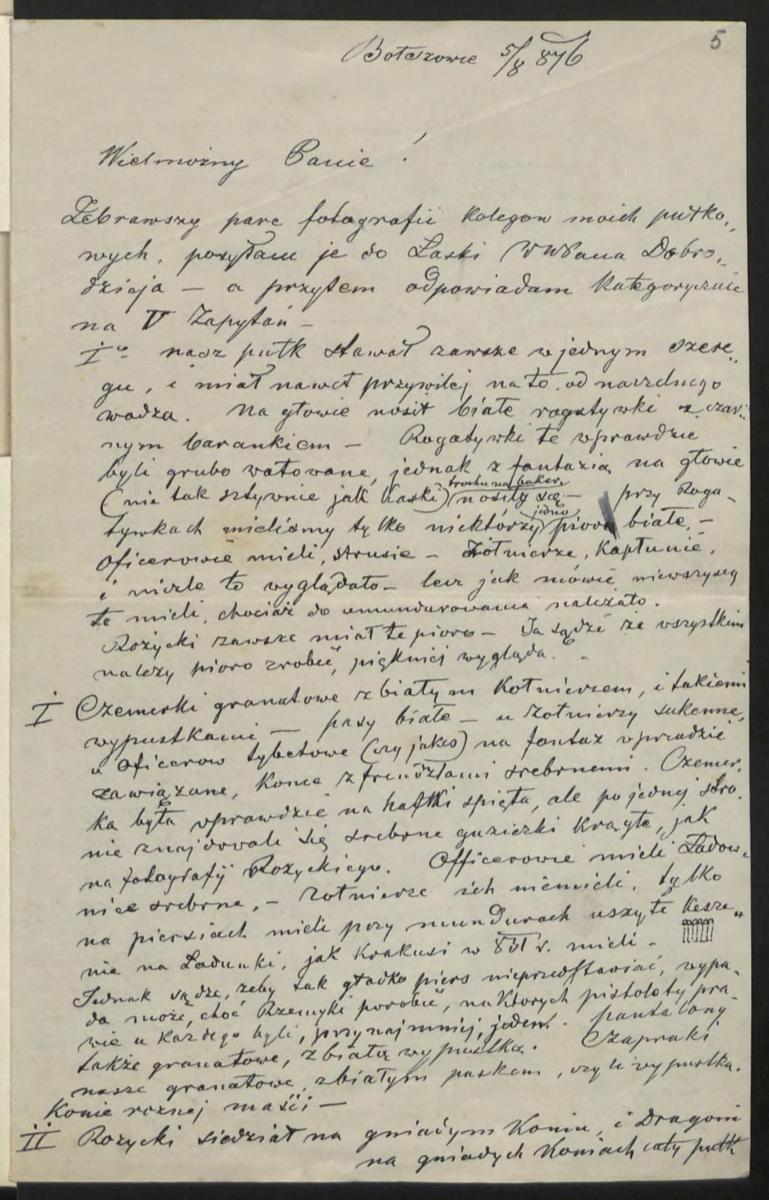 5
Bołszowce 5/8 876
Wielmożny Panie!
Zebrawszy parę fotografii kolegow moich pułko„
wych, posyłam je do Łaski WWPana Dobro„
dzieja — a przytem odpowiadam kategorycznie
na V Zapytań —
Iº nasz pułk stawał zawsze w jednym szere„
gu, i miał nawet przywilej na to od naczelnego
wodza. Na głowie nosił białe rogatywki z czar„
nym barankiem — Rogatywki te wprawdzie
byli grubo watowane, jednak z fantazią na głowie
(nie tak sztywnie jak kaski) trochu na bakier nosiły się — przy Roga-
tywkach mieliśmy tylko niektórzy jedno pioro białe, —
Oficerowie mieli, strusie — Żołnierze, Kapłunie,
i nieźle to wyglądało — lecz jak mówię niewszyscy
te mieli, chociaż do umundurowania należało.
Rożycki zawsze miał te pioro — Ja sądzę że wszystkim
należy pioro zrobić, piękniej wygląda. —
I Czemerki granatowe z białym Kołnierzem, i takiemi
wypustkami — pasy białe — u Żołnierzy sukenne,
u Oficerow tybetowe (czy jakeś) na fontaź wprzodzie
zawiązane, końce z frendzlami srebrnemi. Czemer„
ka była wprawdzie na haftki spięta, ale po jednej stro„
nie znajdowali się srebrne guziczki krągłe, jak
na fotografij Rożyckiego. Officerowie mieli Ładow„
nice srebrne, — żołnierze ich niemieli, tylko
na piersiach mieli przy mundurach uszyte Kesze„
nie na Ładunki, jak Krakusi w 831 r. mieli —
Jednak sądzę, żeby tak gładko piers nieprzedstawiać, wypa„
da może, choć Rzemyki porobić, na ktorych pistolety pra„
wie u każdego byli, przynajmniej, jeden. pantalony
także granatowe, z białą wypustką. Czapraki
nasze granatowe, z białym paskem, czyli wypustką.
Konie roznej maści —
II Rożycki siedział na gniadym Koniu, i Dragoni
na gniadych Koniach cały pułk